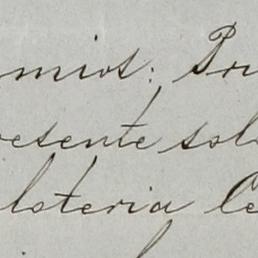 mios: Pri
resente sol
loteria Ce